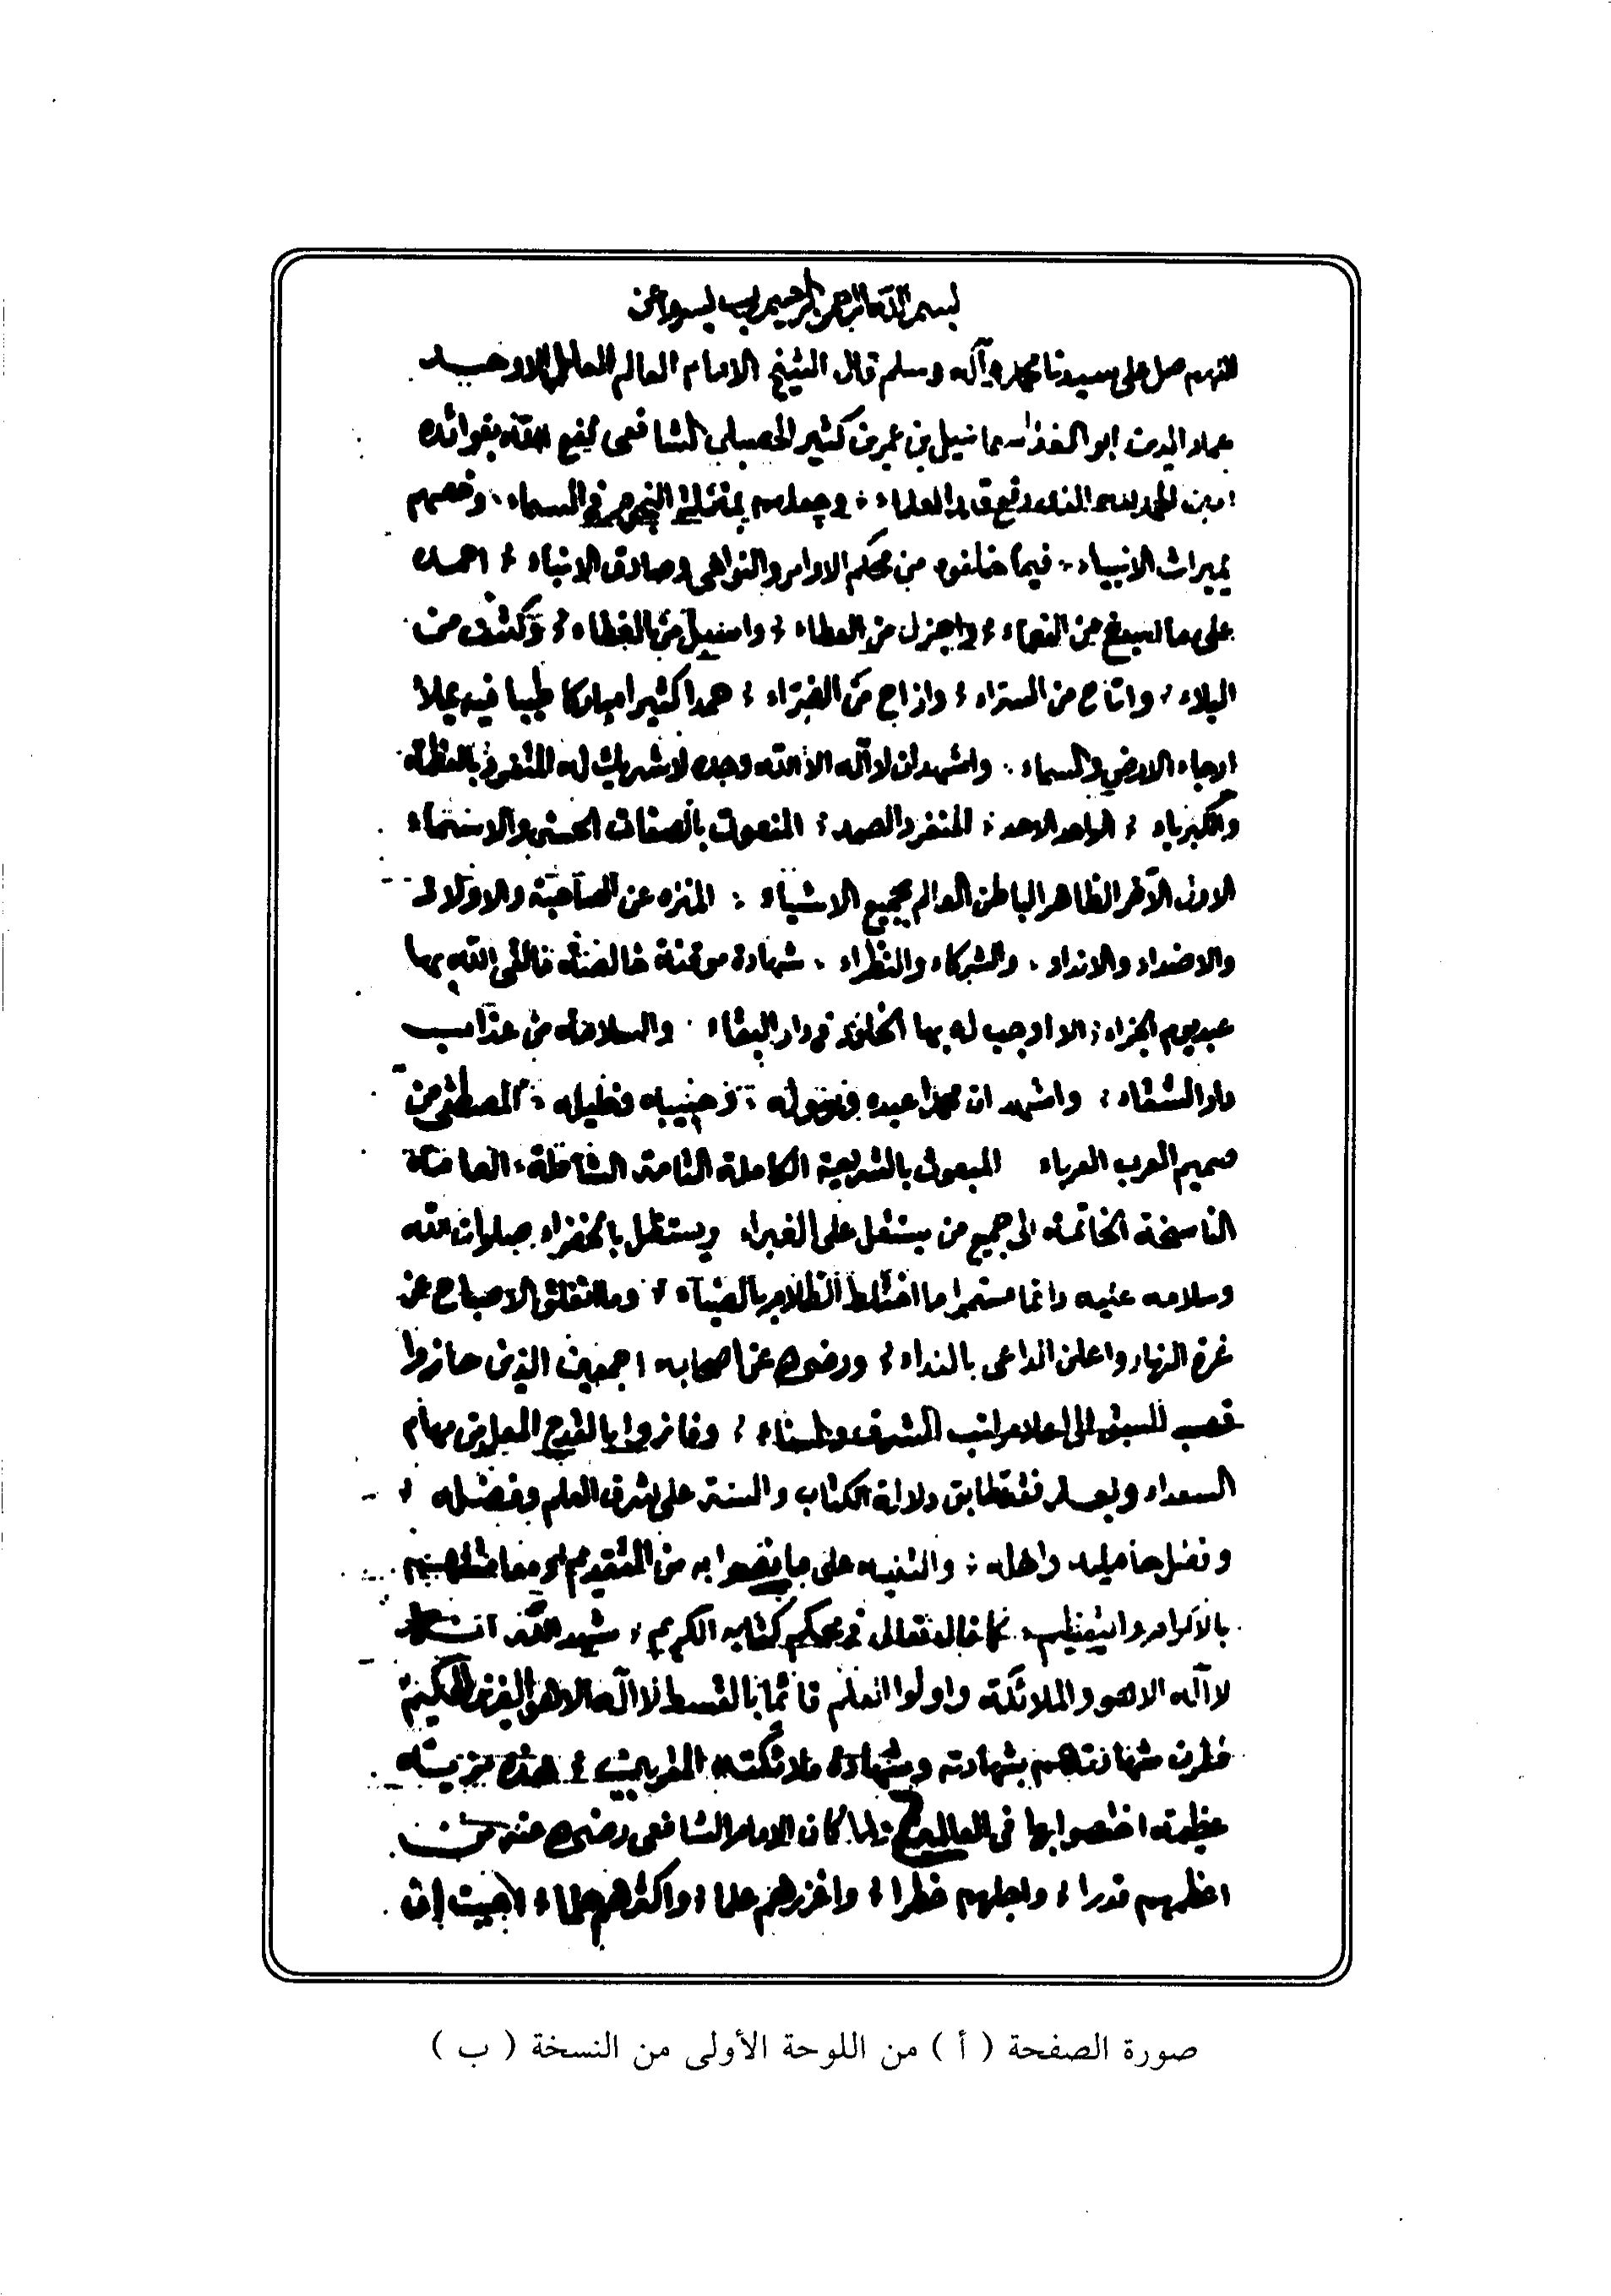 بسم الله الرحمن الرحيم رب يسر واعن
اللهم صل على سيدنا محمد وآله وسلم قال الشيخ الامام العالم العامل الاوحد
عماد الدين ابو الفدا اسماعيل بن عمر بن كثير الشافعى نفع الله بفوائده
امين الحمد لله الذى رفع قدر العلماء وجعلهم بمنزلة النجوم فى السماء وخصهم
بميراث الانبياء فيما خلفوه من محكم الاوامر والنواهى وصادق الانباء احمده
على ما اسبغ من النعماء واجزل من العطاء واسبل من الغطاء وكشف من
البلاء واتاح من السراء وازاح من الضراء حمدا كثيرا مباركا طيبا فيه يملا
ارجاء الارض والسماء واشهد ان لا اله الا الله وحده لا شريك له المتفرد بالعظمة
والكبرياء الواحد الاحد المنفرد الصمد المنعوت بالصفات الحسنى والاسماء
الاول الآخر الظاهر الباطن العالم بجميع الاشياء المنزه عن الصاحبة والاولاد
والاضداد والانداد والشركاء والنظراء شهادة موقنة خالصة ما لقى الله بها
عبد يوم الجزاء الا اوجب له بها الخلود فى دار البقاء والسلامة من عذاب
دار الشقاء واشهد ان محمدا عبده ورسوله وحبيبه وخليله المصطفى من
صميم العرب العرباء المبعوث بالشريعة الكاملة التامة الشاملة العامة
الناسخة الخاتمة الى جميع من يستقل على الغبراء ويستظل بالخضراء صلوات الله
وسلامه عليه دائما مستمرا ما اختلط الظلام بالضياء وما انفلق الاصباح عن
غرة النهار واعلن الداعى بالنداء ورضى عن اصحابه اجمعين الذين حازوا
قصب السبق الى اعلا مراتب الشرف والسناء وفازوا بالقدح المعلى من سهام
السعداء وبعد فقد تطابق دلالة الكتاب والسنة على شرف العلم وفضله
وفضل حامليه واهله والتنبيه على ما خصوا به من التقديم
بالاكرام والتعظيم كما قال تعالى فى محكم كتابه الكريم شهد الله انه
لا اله الا هو والملائكة واولوا العلم قائما بالقسط لا اله الا هو العزيز الحكيم
فقرن شهادتهم بشهادته وشهادة ملائكته المقربين هذه مزية
عظيمة اختصوا بها فى العالمين ولما كان الامام الشافعى رضى عنه من
اعظمهم قدرا واجلهم خطرا واغزرهم علما واكثرهم حلما احببت ان
صورة الصفحة ( أ ) من اللوحة الأولى من النسخة ( ب )